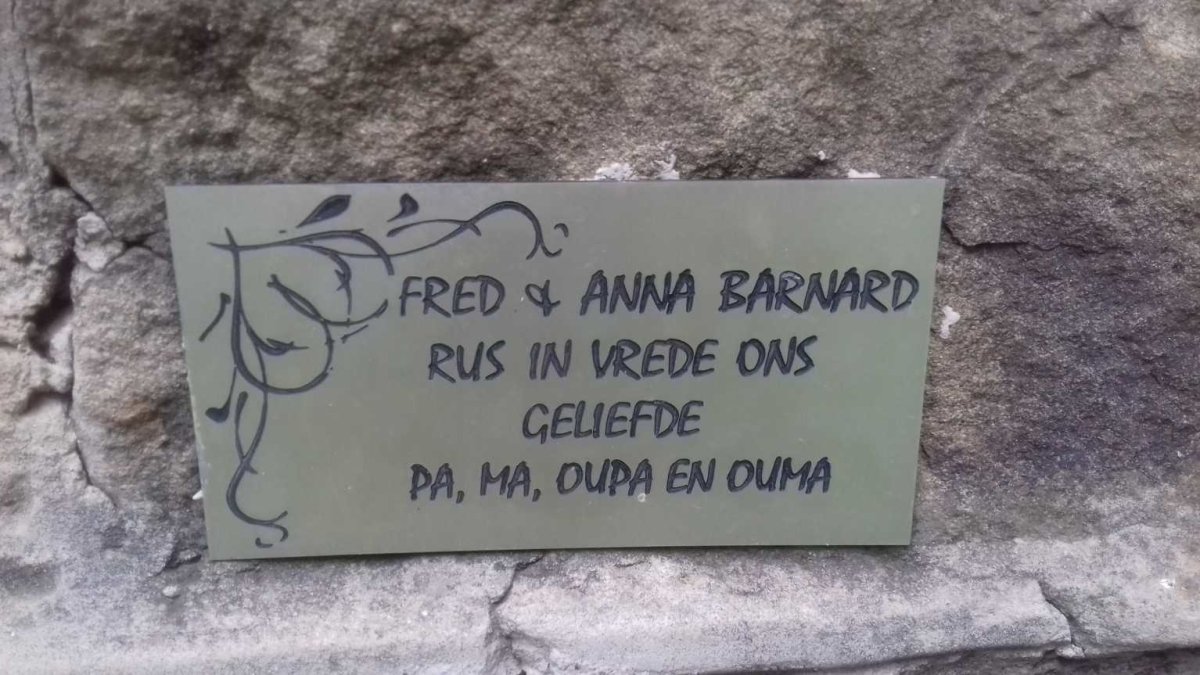 FRED & ANNA BARNARD
RUS IN VREDE ONS
GELIEFDE
PA, MA, OUPA EN OUMA